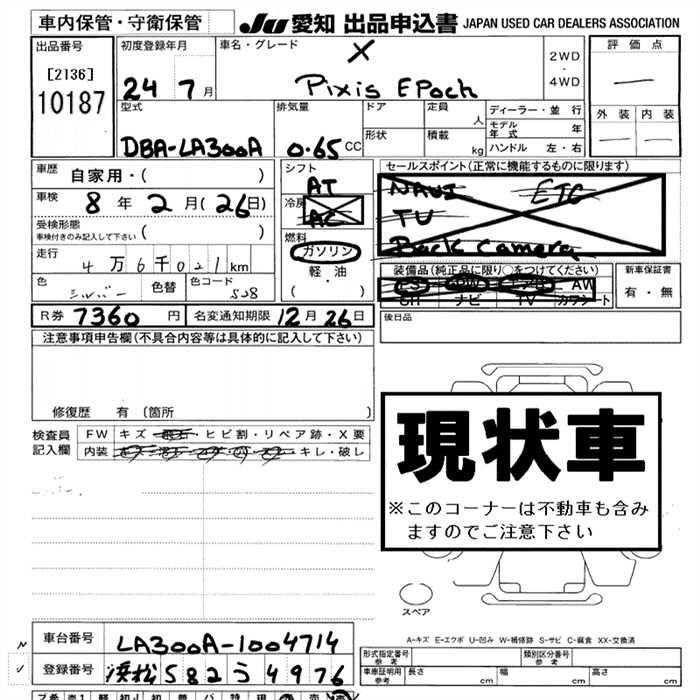 車内保管・守衛保管 JU 愛知 出品申込書 JAPAN USED CAR DEALERS ASSOCIATION
出品番号 初度登録年月 車名・グレード X 2WD・4WD 評価点
[2136] 24 7月 Pixis EPoch —
10187 型式 排気量 ドア 定員 人 ディーラー・並行 外装 内装
DBA-LA300A 0.65CC 形状 積載 kg モデル年式 年 — —
ハンドル 左・右
車歴 自家用・( ) シフト AT セールスポイント(正常に機能するものに限ります)
車検 8年2月(26日) 冷房 AC NAVI ETC
受検形態 車検付きのみ記入して下さい ( ) 燃料 TV
走行 4万6千021km ガソリン Back Camera
色 シルバー 色替 色コード S28 軽・油 装備品(純正品に限り○をつけてください) 新車保証書
( ・ ) PS PW エアB AW 有・無
SR ナビ TV カワシート
R券 7360円 名変通知期限 12月26日 後日品
注意事項申告欄(不具合内容等は具体的に記入して下さい)
修復歴 有 [箇所 ]
検査員記入欄 FW キズ・飛石・ヒビ割・リペア跡・X要
内装 キレ・破レ
現状車
※このコーナーは不動車も含み
ますのでご注意下さい
スペア
A-キズ E-エクボ U-凹み W-補修跡 S-サビ C-腐食 XX-交換済
車台番号 LA300A-1004714 形式指定番号 参考 類別区分番号 参考
登録番号 浜松 582 う 4976 車庫証明用 参考 長さ cm 幅 cm 高さ cm